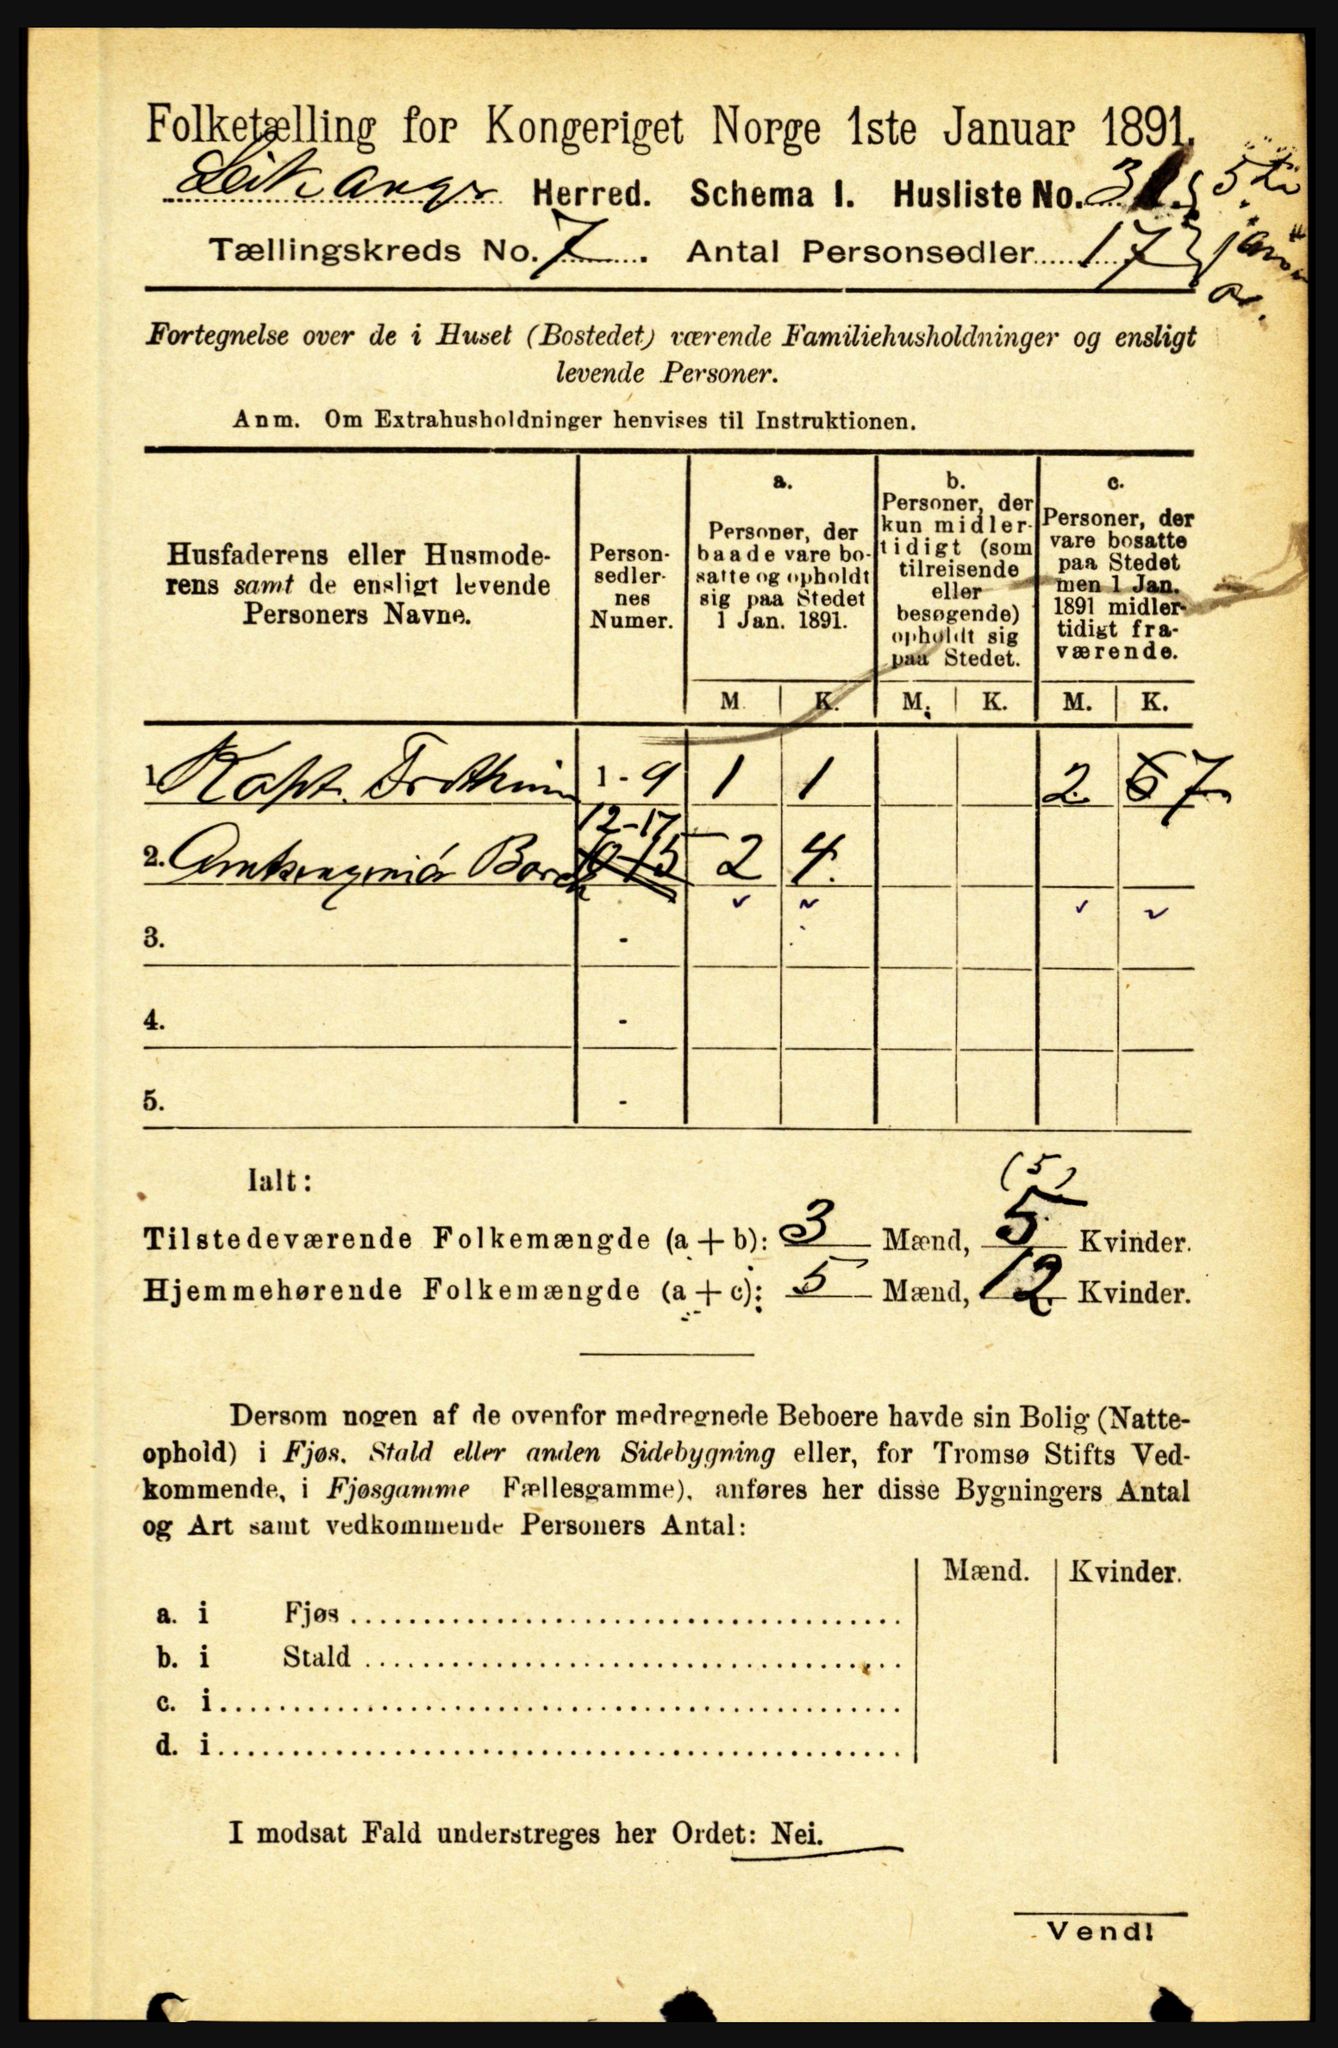 Folketælling for Kongeriget Norge 1ste Januar 1891.
Leikanger Herred. Schema I. Husliste No. 31
Tællingskreds No. 7. Antal Personsedler 17
Fortegnelse over de i Huset (Bostedet) værende Familiehusholdninger og ensligt
levende Personer.
Anm. Om Extrahusholdninger henvises til Instruktionen.
Husfaderens eller Husmode-
rens samt de ensligt levende
Personers Navne.
Person-
sedler-
nes
Numer.
a.
Personer, der
baade vare bo-
satte og opholdt
sig paa Stedet
1 Jan. 1891.
b.
Personer, der
kun midler-
tidigt (som
tilreisende
eller
besøgende)
opholdt sig
paa Stedet.
c.
Personer, der
vare bosatte
paa Stedet
men 1 Jan.
1891 midler-
tidigt fra-
værende.
M. K. M. K. M. K.
1. Kapt. 1-9 1 1 2 6 7
12-17
2. Amtsingeniør Borch 10-15 2 4.
3. -
4. -
5. -
Ialt:
(5)
Tilstedeværende Folkemængde (a + b): 3 Mænd, 5 Kvinder.
Hjemmehørende Folkemængde (a + c): 5 Mænd, 12 Kvinder.
Dersom nogen af de ovenfor medregnede Beboere havde sin Bolig (Natte-
ophold) i Fjøs, Stald eller anden Sidebygning eller, for Tromsø Stifts Ved-
kommende, i Fjøsgamme Fællesgamme), anføres her disse Bygningers Antal
og Art samt vedkommende Personers Antal:
Mænd. Kvinder.
a. i Fjøs
b. i Stald
c. i
d. i
I modsat Fald understreges her Ordet: Nei.
Vend!